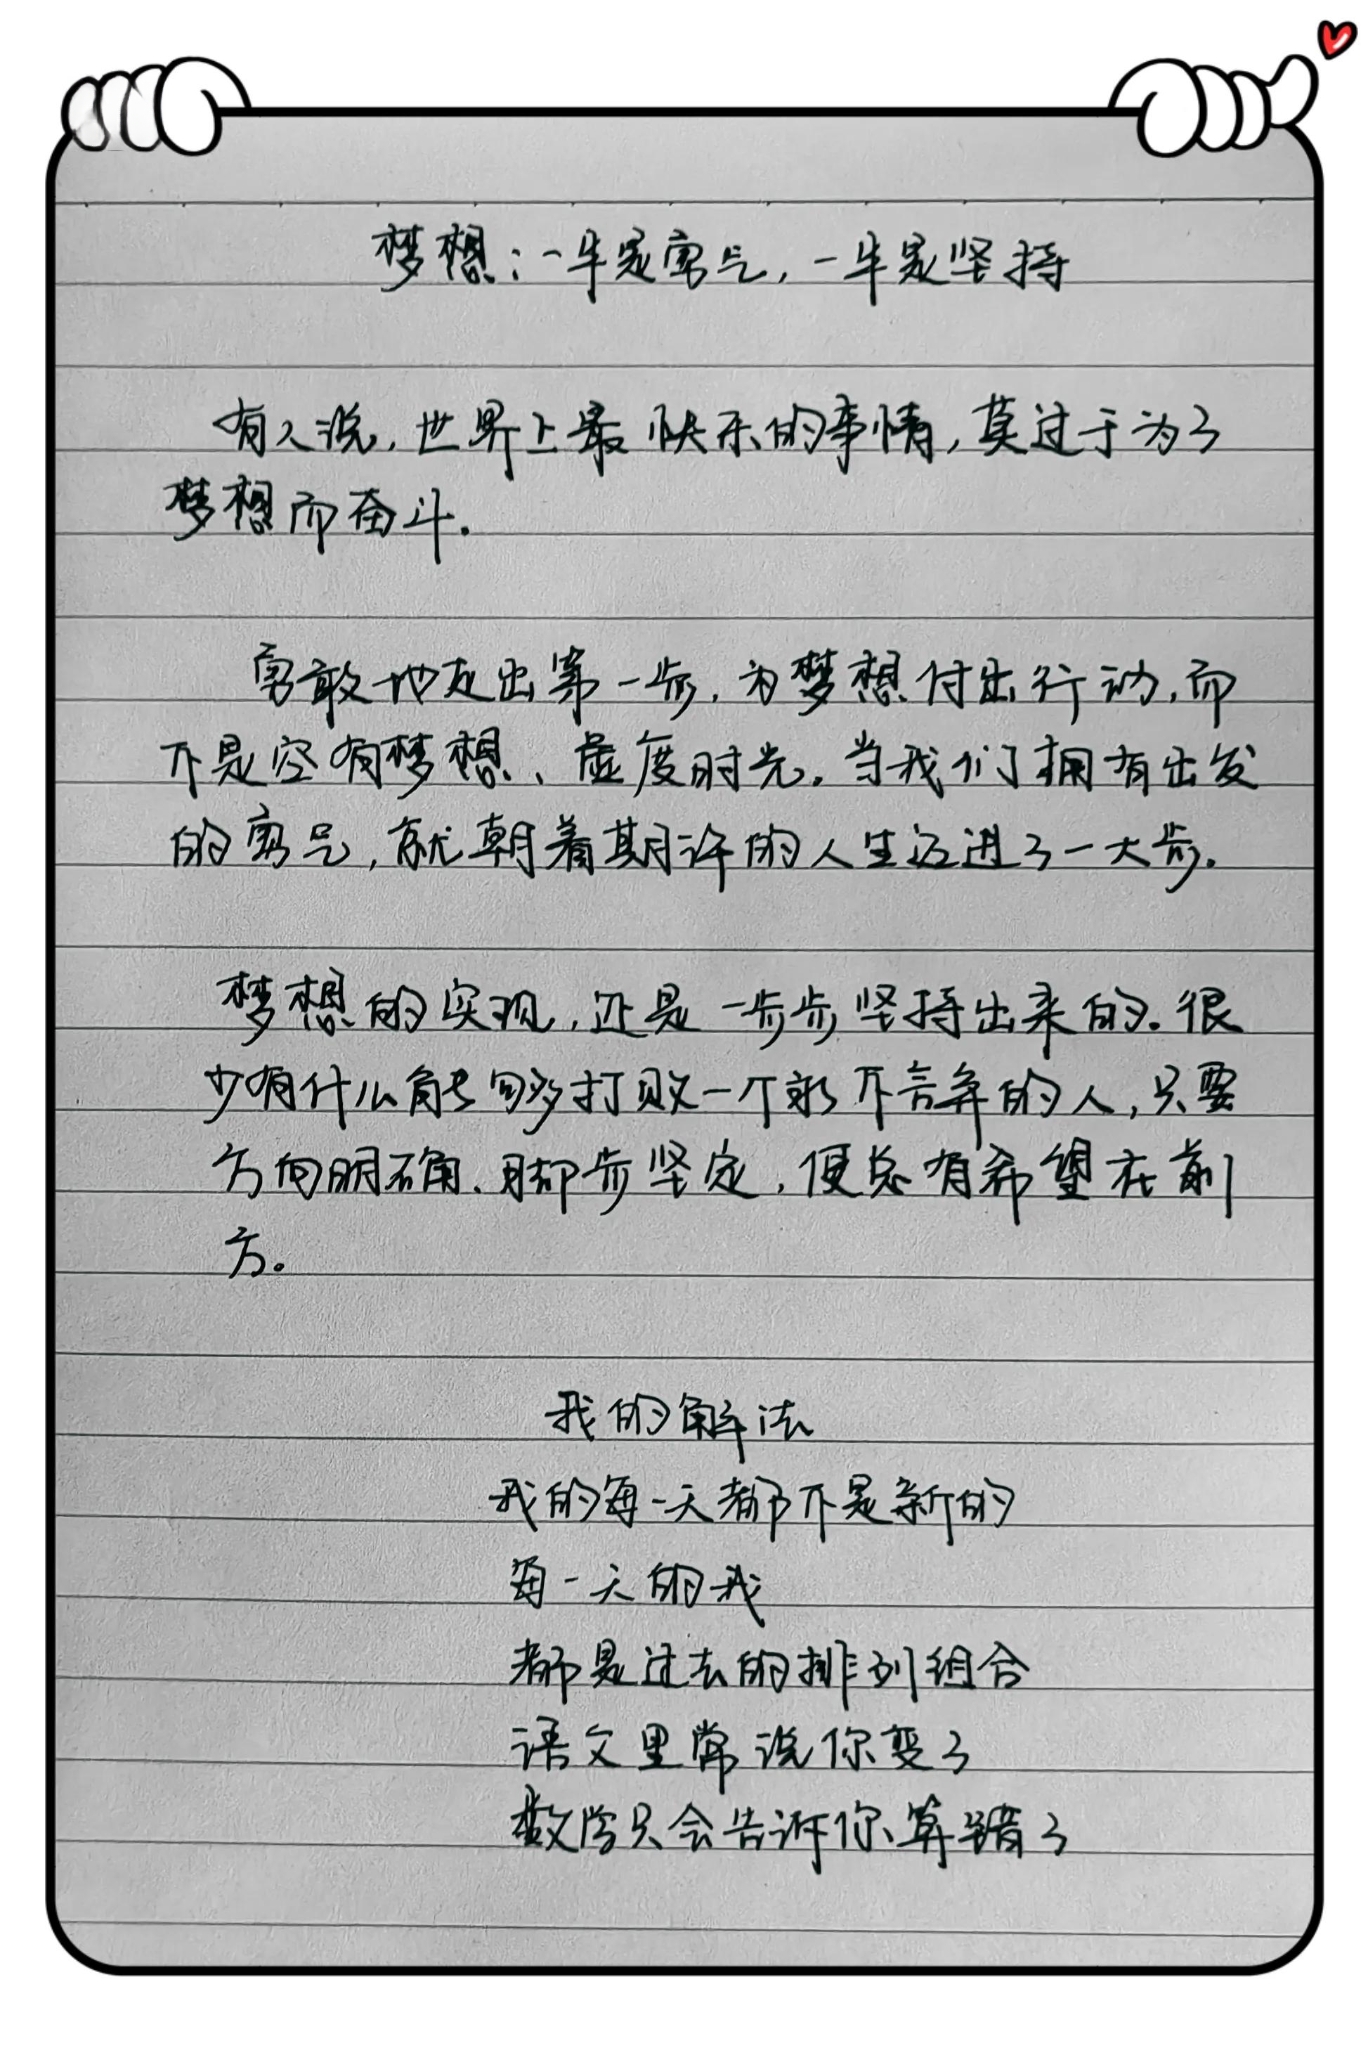 梦想：一半是勇气，一半是坚持
有人说，世界上最快乐的事情，莫过于为了
梦想而奋斗.
勇敢地走出第一步，为梦想付出行动，而
不是空有梦想、虚度时光。当我们拥有出发
的勇气，就朝着期许的人生迈进了一大步.
梦想的实现，还是一步步坚持出来的.很
少有什么能够打败一个永不言弃的人，只要
方向明确、脚步坚定，便总有希望在前
方。
我的解法
我的每一天都不是新的
每一天的我
都是过去的排列组合
语文里常说你变了
数学只会告诉你算错了